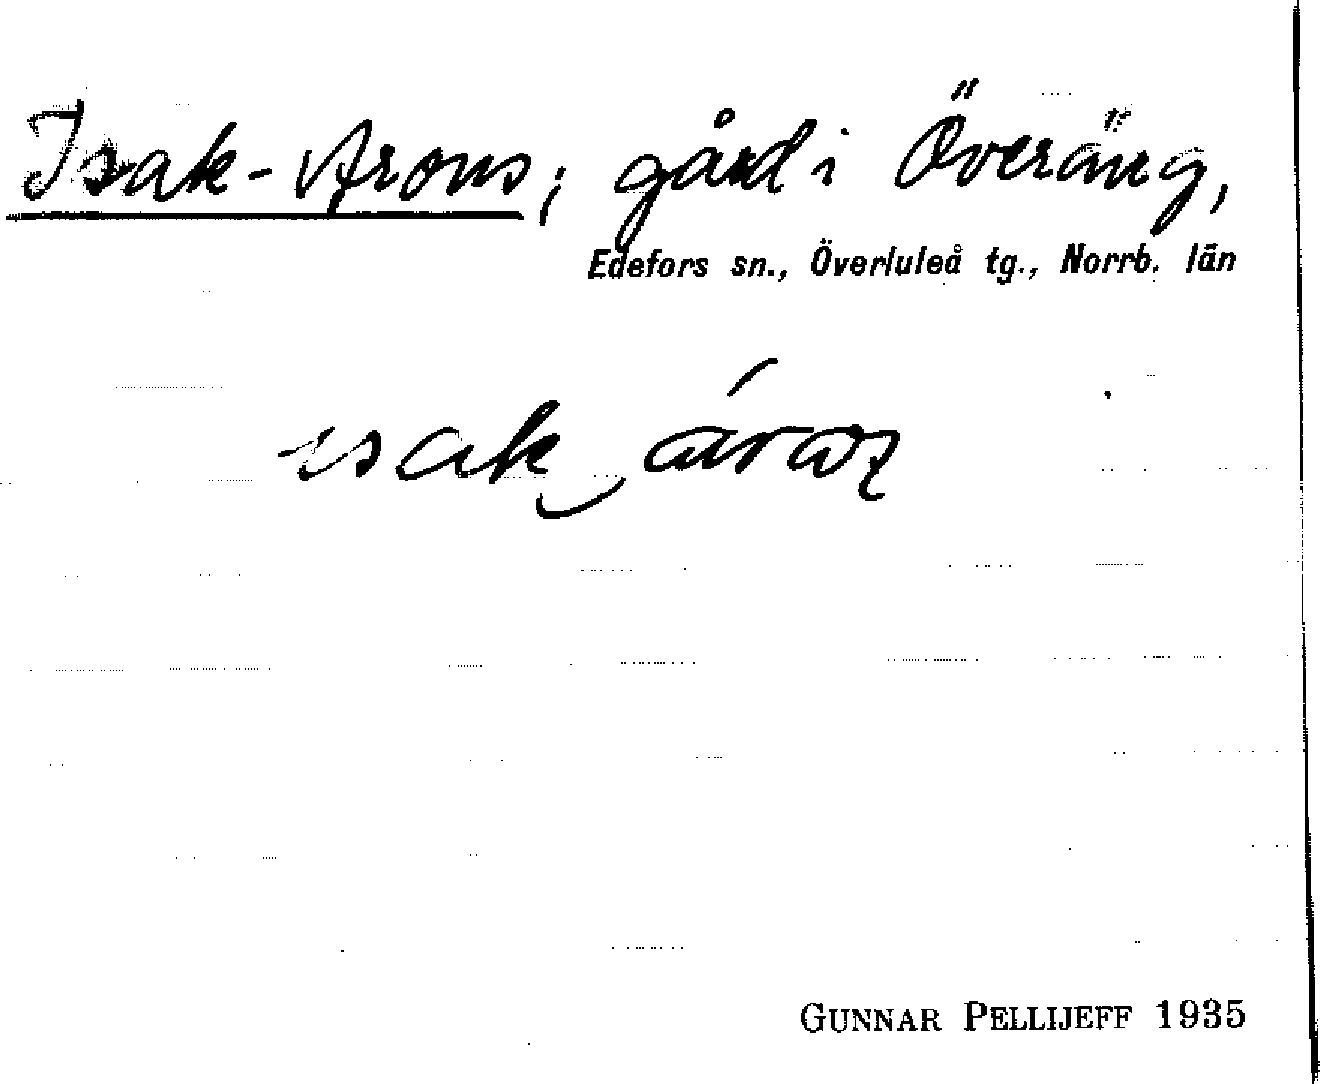 Isak-Arons; gård i Överäng,
Edefors sn., Överluleå tg., Norrb. län
isak
GUNNAR PELLIJEFF 1935